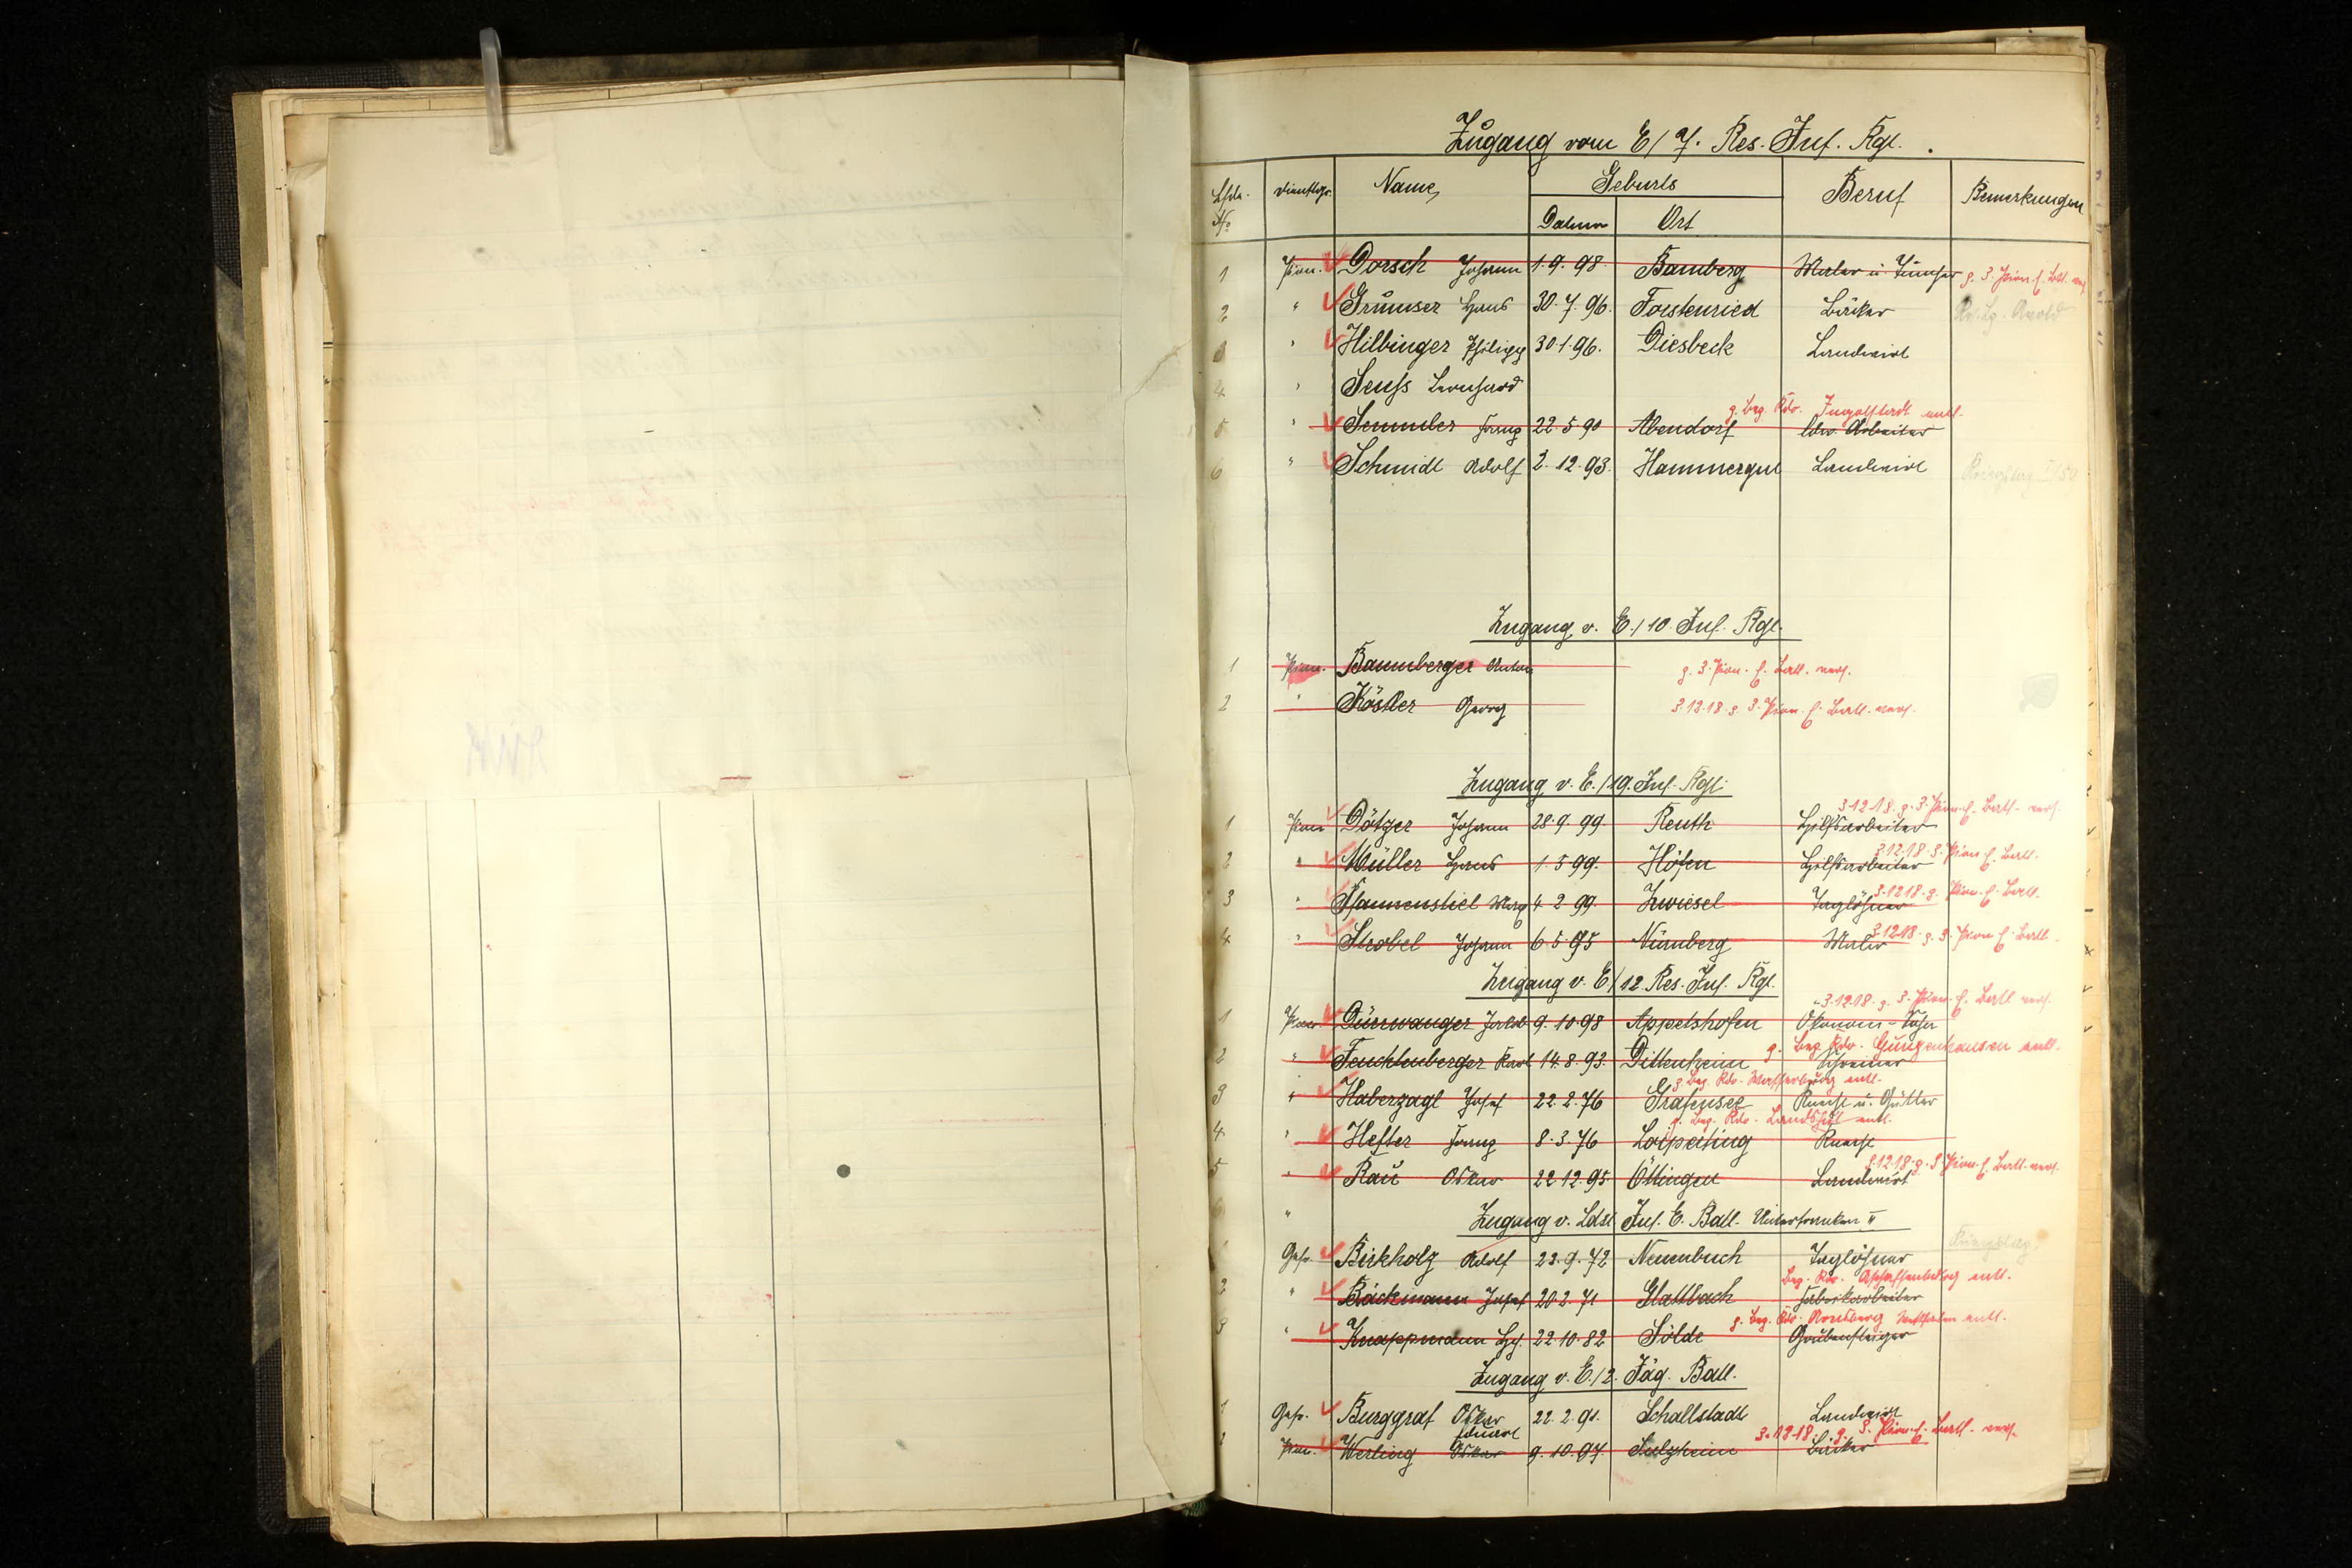 Zugang vom E/7. Res. Inf. Rgt.
Lfde. No Dienstgr. Name Geburts Beruf Bemerkungen
Datum Ort
1 Pion. Dorsch Johann 1.9.98. Bamberg Maler u. Tüncher z. 3. Pion. E. Batl. vers.
2 " Grunser Hans 30.7.96. Forstenried Bäcker
3 " Hilbinger Philipp 30.1.96. Diesbeck Landwirt
4 " Seuss Leonhard
z. Bez. Kdo. Ingolstadt entl.
5 " Semmler Franz 22.5.90 Abendorf ldw. Arbeiter
6 " Schmidt Adolf 2.12.93. Hammergut Landwirt
Zugang v. E./10. Inf. Rgt.
1 Pion. Baumberger Anton z. 3. Pion. E. Batl. vers.
2 " Köstler Georg 3.12.18 z. 3. Pion. E. Batl. vers.
Zugang v. E./19. Inf. Rgt.
3.12.18. z. 3. Pion. E. Batl. vers.
1 Pion Dötzer Johann 28.9.99 Reuth Hilfsarbeiter
3.12.18. 3. Pion E. Batl.
2 " Müller Hans 1.5.99. Höfen Hilfsarbeiter
3.12.18. z. Pion. E. Batl.
3 " Pfannenstiel Marg 4.2.99. Zwiesel Taglöhner
3.12.18. z. 3. Pion E. Batl.
4 " Strobel Johann 6.5.95 Nürnberg Maler
Zugang v. E./12. Res. Inf. Rgt.
3.12.18. z. 3. Pion. E. Batl vers.
1 Pion. Dürrwanger Jakob 9.10.98 Appetshofen Ökonom-Sohn
z. Bez. Kdo. Gunzenhausen entl.
2 " Feuchtenberger Karl 14.8.93. Dittenheim Schreiner
z. Bez. Kdo. Wasserburg entl.
3 " Haberzagl Josef 22.2.76 Grafensee Knecht u. Gütler
z. Bez. Kdo. Landshut entl.
4 " Hefter Franz 8.3.76 Loiperting Knecht
3.12.18. z. 3. Pion. E. Batl. vers.
5 " Rau Oskar 22.12.95 Öttingen Landwirt
6 " Zugang v. Ldst. Inf. E. Batl. Unterfranken II
1 Gefr. Birkholz Adolf 23.9.72 Neuenbuch Taglöhner
Bez. Kdo. Aschaffenburg entl.
2 " Bäckmann Josef 20.2.71 Glattbach Fabrikarbeiter
z. Bez. Kdo. Arnsberg Westfalen entl.
3 " Knappmann Hch. 22.10.82 Sölde Grubensteiger
Zugang v. E./2. Jäg. Batl.
1 Gefr. Burggraf Oskar 22.2.91. Schallstadt Landwirt
Eduard 3.12.18. z. 3. Pion. E. Batl. vers.
2 Pion. Werling Oskar 9.10.97. Sulzheim Bäcker